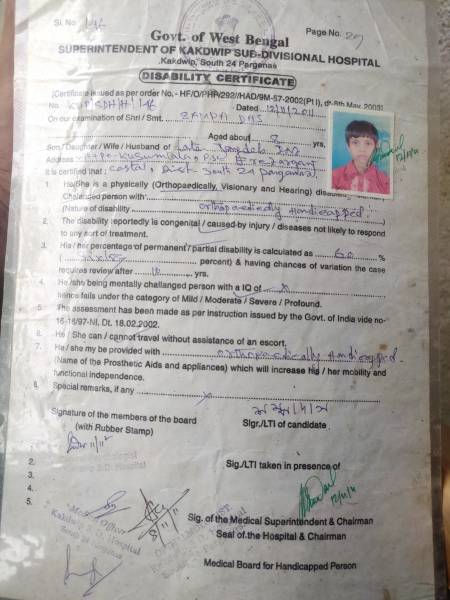 Sl. No. 146
Page No. 29
Govt. of West Bengal
SUPERINTENDENT OF KAKDWIP SUB-DIVISIONAL HOSPITAL
Kakdwip, South 24 Parganas
DISABILITY CERTIFICATE
(Certificate issued as per order No. - HF/O/PHP/292//HAD/9M-57-2002(Pt.I), dt-8th May, 2003)
No. KDP/SDH/H/146 Dated 12/11/2011
On our examination of Shri / Smt. DAS
Aged about 8 yrs.
Son/Daughter / Wife / Husband of Late Das
Address
It is certified that : Costal, Dist South 24 parganas
1. He/She is a physically (Orthopaedically, Visionary and Hearing)
Challanged person with
(Nature of disability Orthopaedically Handicapped
2. The disability reportedly is congenital / caused by injury / diseases not likely to respond
to any sort of treatment.
3. His / her percentage of permanent / partial disability is calculated as 60 %
( Sixty percent) & having chances of variation the case
requires review after 10 yrs.
4. He / she being mentally challanged person with a IQ of x
hence falls under the category of Mild / Moderate / Severe / Profound.
5. The assessment has been made as per instruction issued by the Govt. of India vide no-
16-18/97-NI, Dt. 18.02.2002.
6. He / She can / cannot travel without assistance of an escort.
7. He / she my be provided with Orthopaedically Handicapped
(Name of the Prosthetic Aids and appliances) which will increase his / her mobility and
functional independence.
8. Special remarks, if any x
Signature of the members of the board
(with Rubber Stamp)
Sigr./LTI of candidate
S.D. Hospital
2.
3.
4.
5.
Sig./LTI taken in presence of
12/11/11
Medical Officer
Kakdwip S. D. Hospital
8/11/11
Sig. of the Medical Superintendent & Chairman
Seal of the Hospital & Chairman
Medical Board for Handicapped Person